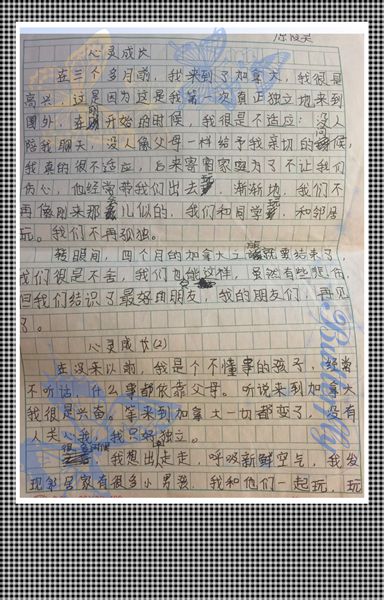 心灵成长
在三个多月前，我来到了加拿大，我很是
高兴，这是因为这是我第一次真正独立地来到
国外，在刚开始的时候，我很是不适应：没人
陪我聊天，没人像父母一样给予我亲切的问候，
我真的很不适应，后来寄宿家庭为了不让我们
伤心，他经常带我们出去玩，渐渐地，我们不
再像刚来那会儿似的，我们和同学玩，和邻居
玩。我们不再孤独。
转眼间，四个月的加拿大之旅就要结束了，
我们很是不舍，我们也能这样，虽然有些悲伤
但我们结识了最好的朋友，我的朋友们，再见
了。
心灵成长(2)
在没来以前，我是个不懂事的孩子，经常
不听话，什么事都依靠父母。听说来到加拿大
我很是兴奋。等来到加拿大一切都变了，没有
人关心我，我只好独立。
很多时候，我想出去走走，呼吸新鲜空气，我发
现邻居家有很多小男孩，我和他们一起玩，玩
Butterfly